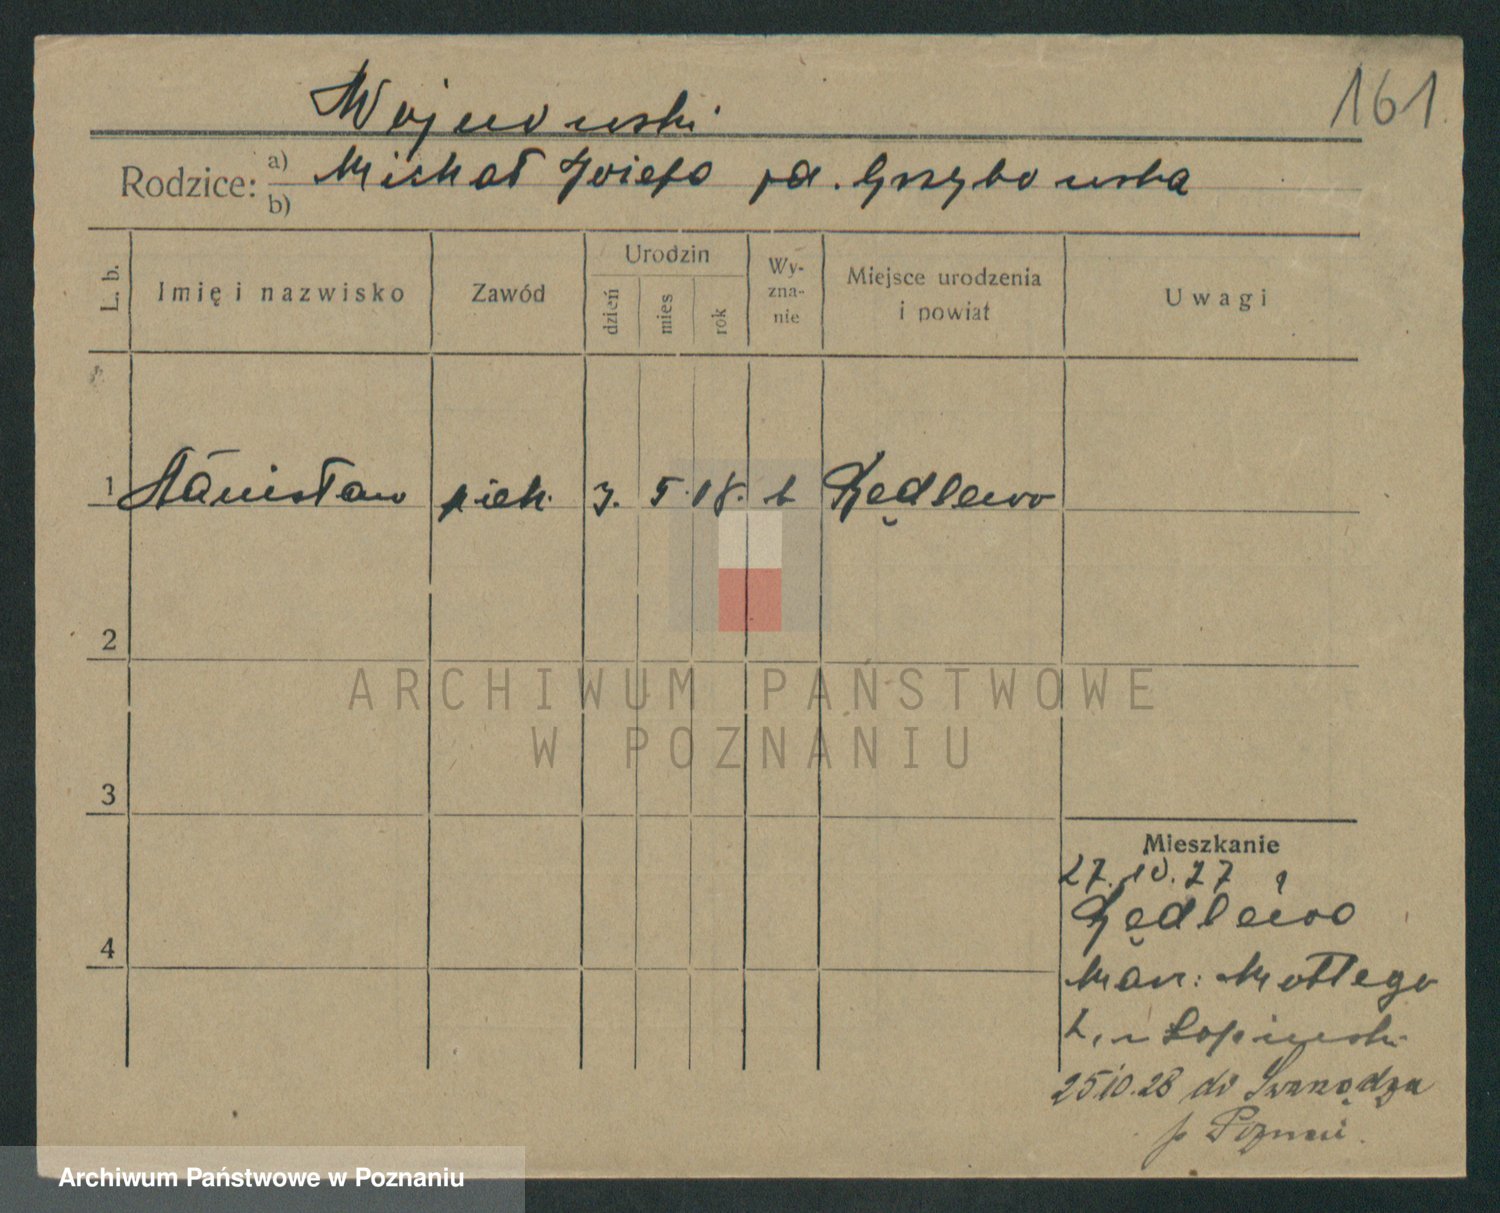 161.
Wojnowski
Rodzice: a) Michał Józefa zd. Grzybowska
b)
L. b. Imię i nazwisko Zawód Urodzin dzień mies rok Wyznanie Miejsce urodzenia i powiat Uwagi
1 Stanisław piek. 3. 5. 08. k Kędlewo
2
ARCHIWUM PAŃSTWOWE
W POZNANIU
3
Mieszkanie
27.10.27
4
Mar:
25.10.28 do
p Poznań.
Archiwum Państwowe w Poznaniu